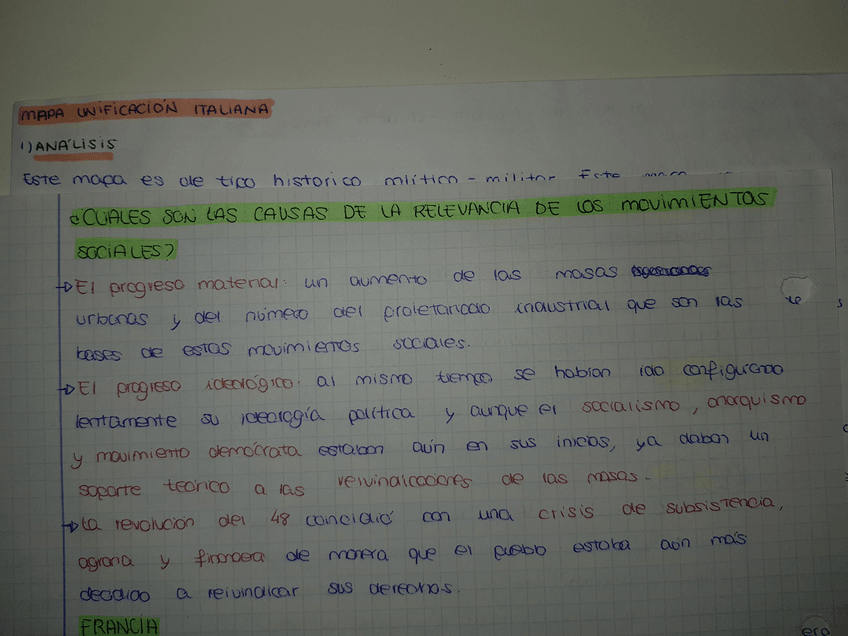 MAPA UNIFICACIÓN ITALIANA
1) ANÁLISIS
Este mapa es de tipo historico político - militar Este mapa
¿CUALES SON LAS CAUSAS DE LA RELEVANCIA DE LOS MOVIMIENTOS
SOCIALES?
→ El progreso material: un aumento de las masas
urbanas y del número del proletariado industrial que son las
bases de estos movimientos sociales.
→ El progreso ideológico: al mismo tiempo se habían ido configurando
lentamente su ideología política y aunque el socialismo, anarquismo
y movimiento demócrata estaban aún en sus inicios, ya daban un
soporte teórico a las reivindicaciones de las masas.
→ La revolución del 48 coincidió con una crisis de subsistencia,
agraria y financiera de manera que el pueblo estaba aún más
decidido a reivindicar sus derechos.
FRANCIA